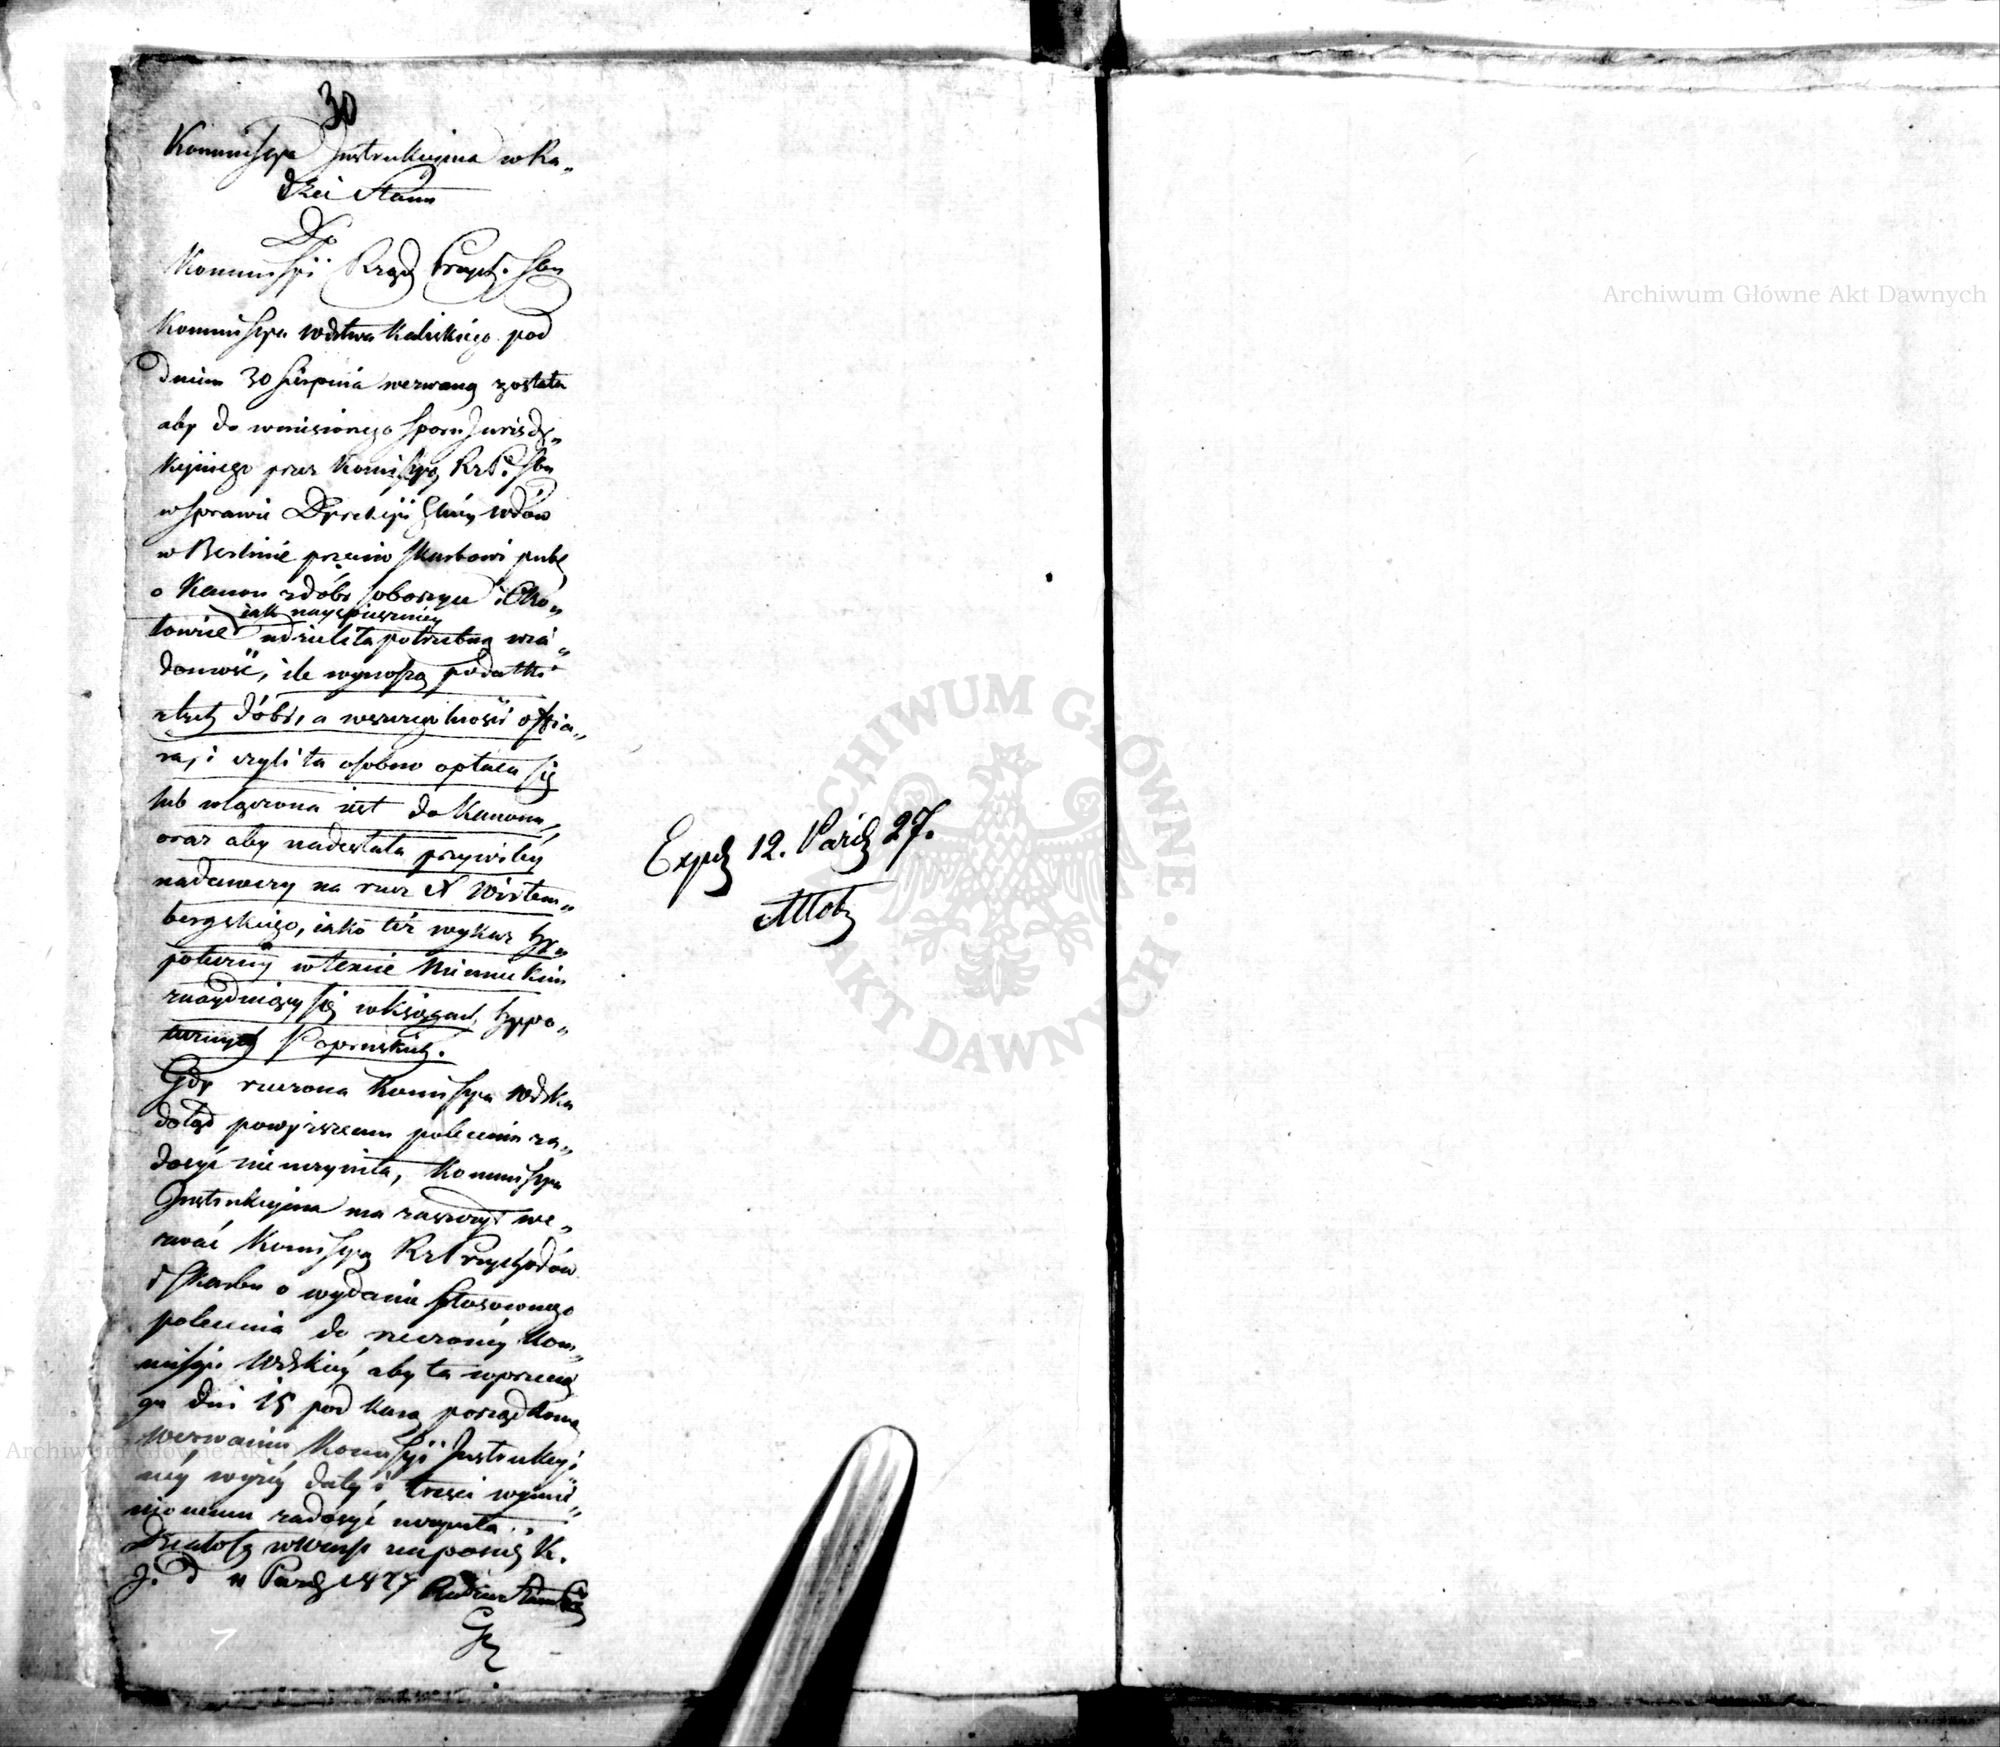 30
Kommissya Instrukcyjna w Ra„
dzei Stanu
Do
Kommissyi Rząd Przych. Sbu
Kommissya Wdztwa Kaliskiego pod
dniem 30 Sierpnia wezwaną została
aby do wniesionego Sporu Jurisdy„
kcyjnego przez Komissyą Rz P. Sbu
w sprawie Dyrekcyi Wdów
w Berlinie przeciw Skarbowi publ
o Kanon z dóbr Soboszyce i
iak nayspieszniey
towice udzieliła potrzebną wia„
domość, ile wynoszą podatki
z tych dóbr, a w szczegulności offia„
ra, i czyli ta osobno opłaca się
lub włączona iest do Kanonu,
oraz aby nadesłała przywiley
nadawczy na rzecz X Wirtem„
bergskiego, iako też wykaz hy„
poteczny w texcie Niemieckim
znayduiący się w księgach hyppo„
tecznych Popruskich.
Gdy rzeczona Komissya Wdzka
dotąd powyższemu poleceniu za„
dosyć nie uczyniła, Kommissya
Instrukcyjna ma zaszczyt we„
zwać Komissyą Rz Przychodów
i Skarbu o wydanie stosownego
polecenia do rzeczoney Kom„
missyi Wdzkiey aby ta w przecią
gu dni 15 pod karą porządkową
wezwaniu Komissyi Instrukcyi
ney wyżey daty i treści wymie„
nionemu zadosyć uczyniła.
Działo się w Warsz na posiedz K.
J. d 11 Paźdz 1827 Radzca Stanu
Expd 12. Paźdz 27.